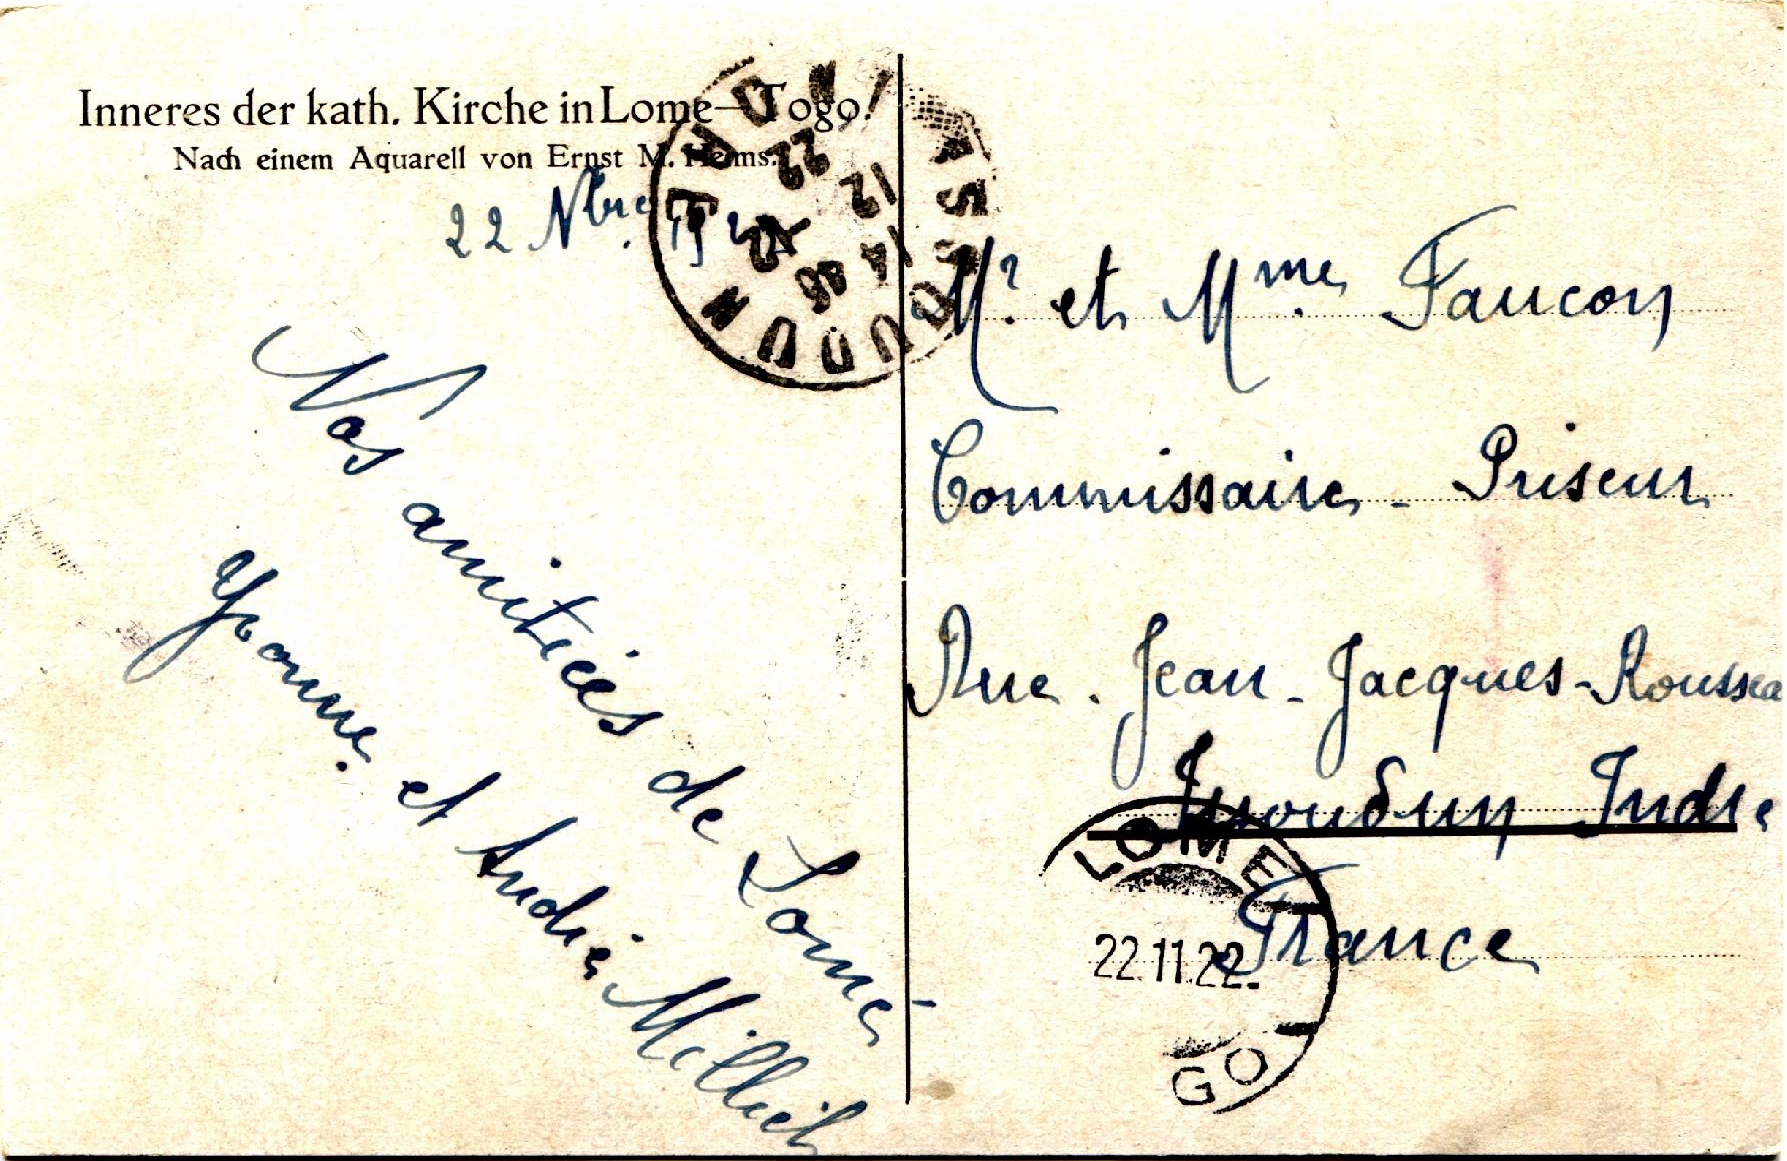 Inneres der kath. Kirche in Lome—Togo.
Nach einem Aquarell von Ernst M. Heims.
22 Nbre 1922
Nos amitiés de Lomé
Yvonne et André
Mr et Mme Faucon
Commissaire-Priseur
Rue. Jean-Jacques-Roussea
Issoudun Indre
France
ISSOUDUN
INDRE
12
14 45
12
22
LOME
22.11.22.
GO